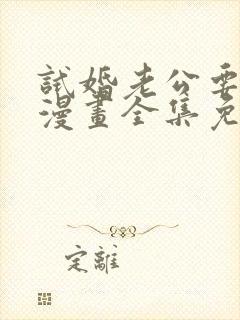 試婚老公要
漫畫全集免
定離